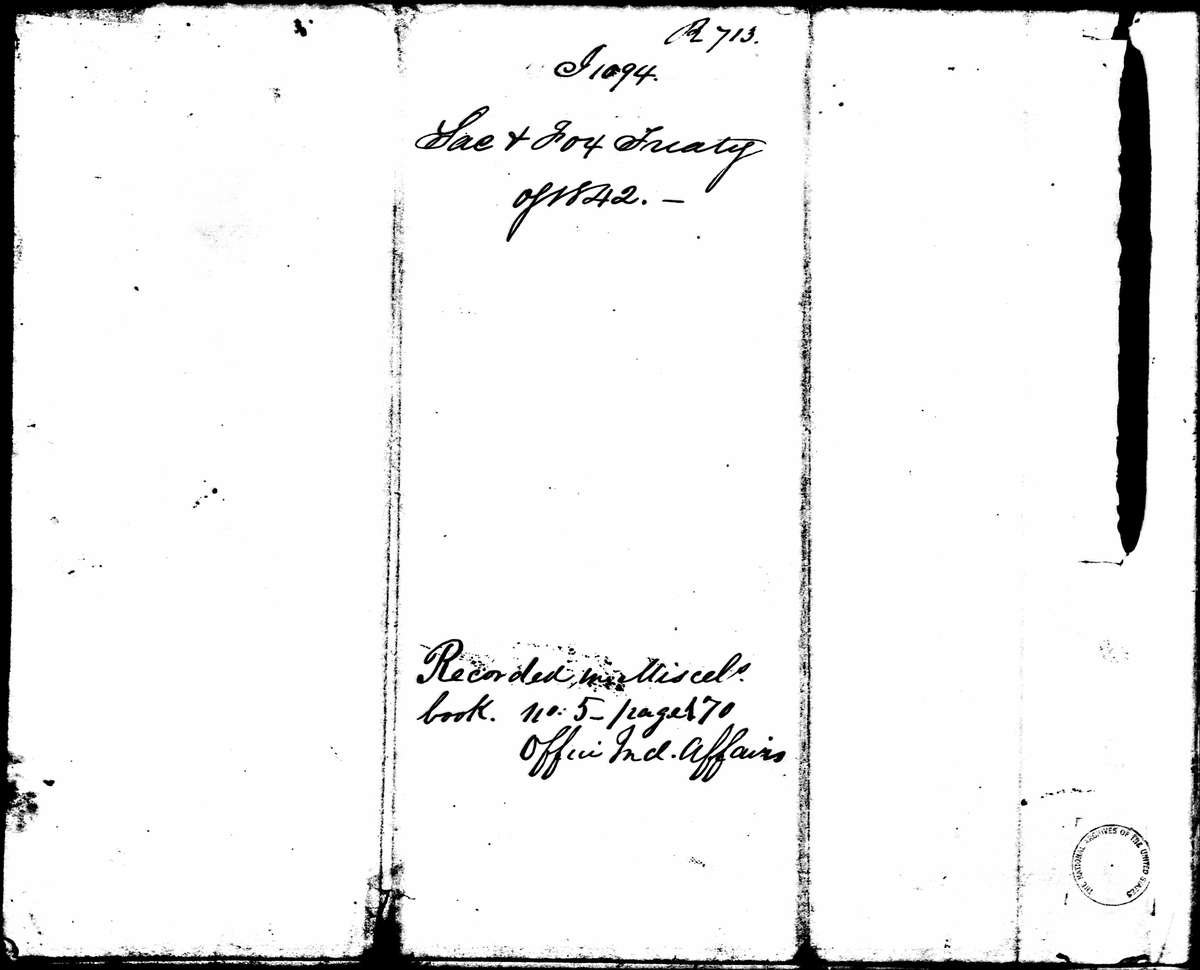 R 713.
I 1094.
Sac & Fox Treaty
of 1842. —
Recorded in Miscels.
book. no: 5 - page 170
Office Ind. Affairs
THE NATIONAL ARCHIVES OF THE UNITED STATES